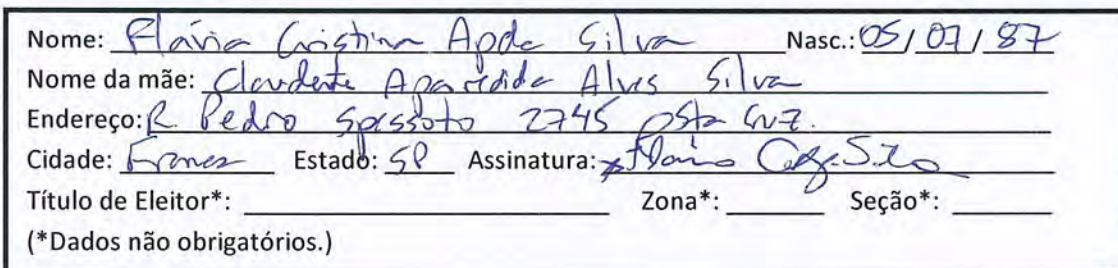 Nome: Flávia Cristina Apda Silva Nasc.: 05/07/87
Nome da mãe: Aparedida Alves Silva
Endereço: R. Pedro Spessoto 2745
Cidade: Franca Estado: SP Assinatura:
Título de Eleitor*: Zona*: Seção*:
(*Dados não obrigatórios.)